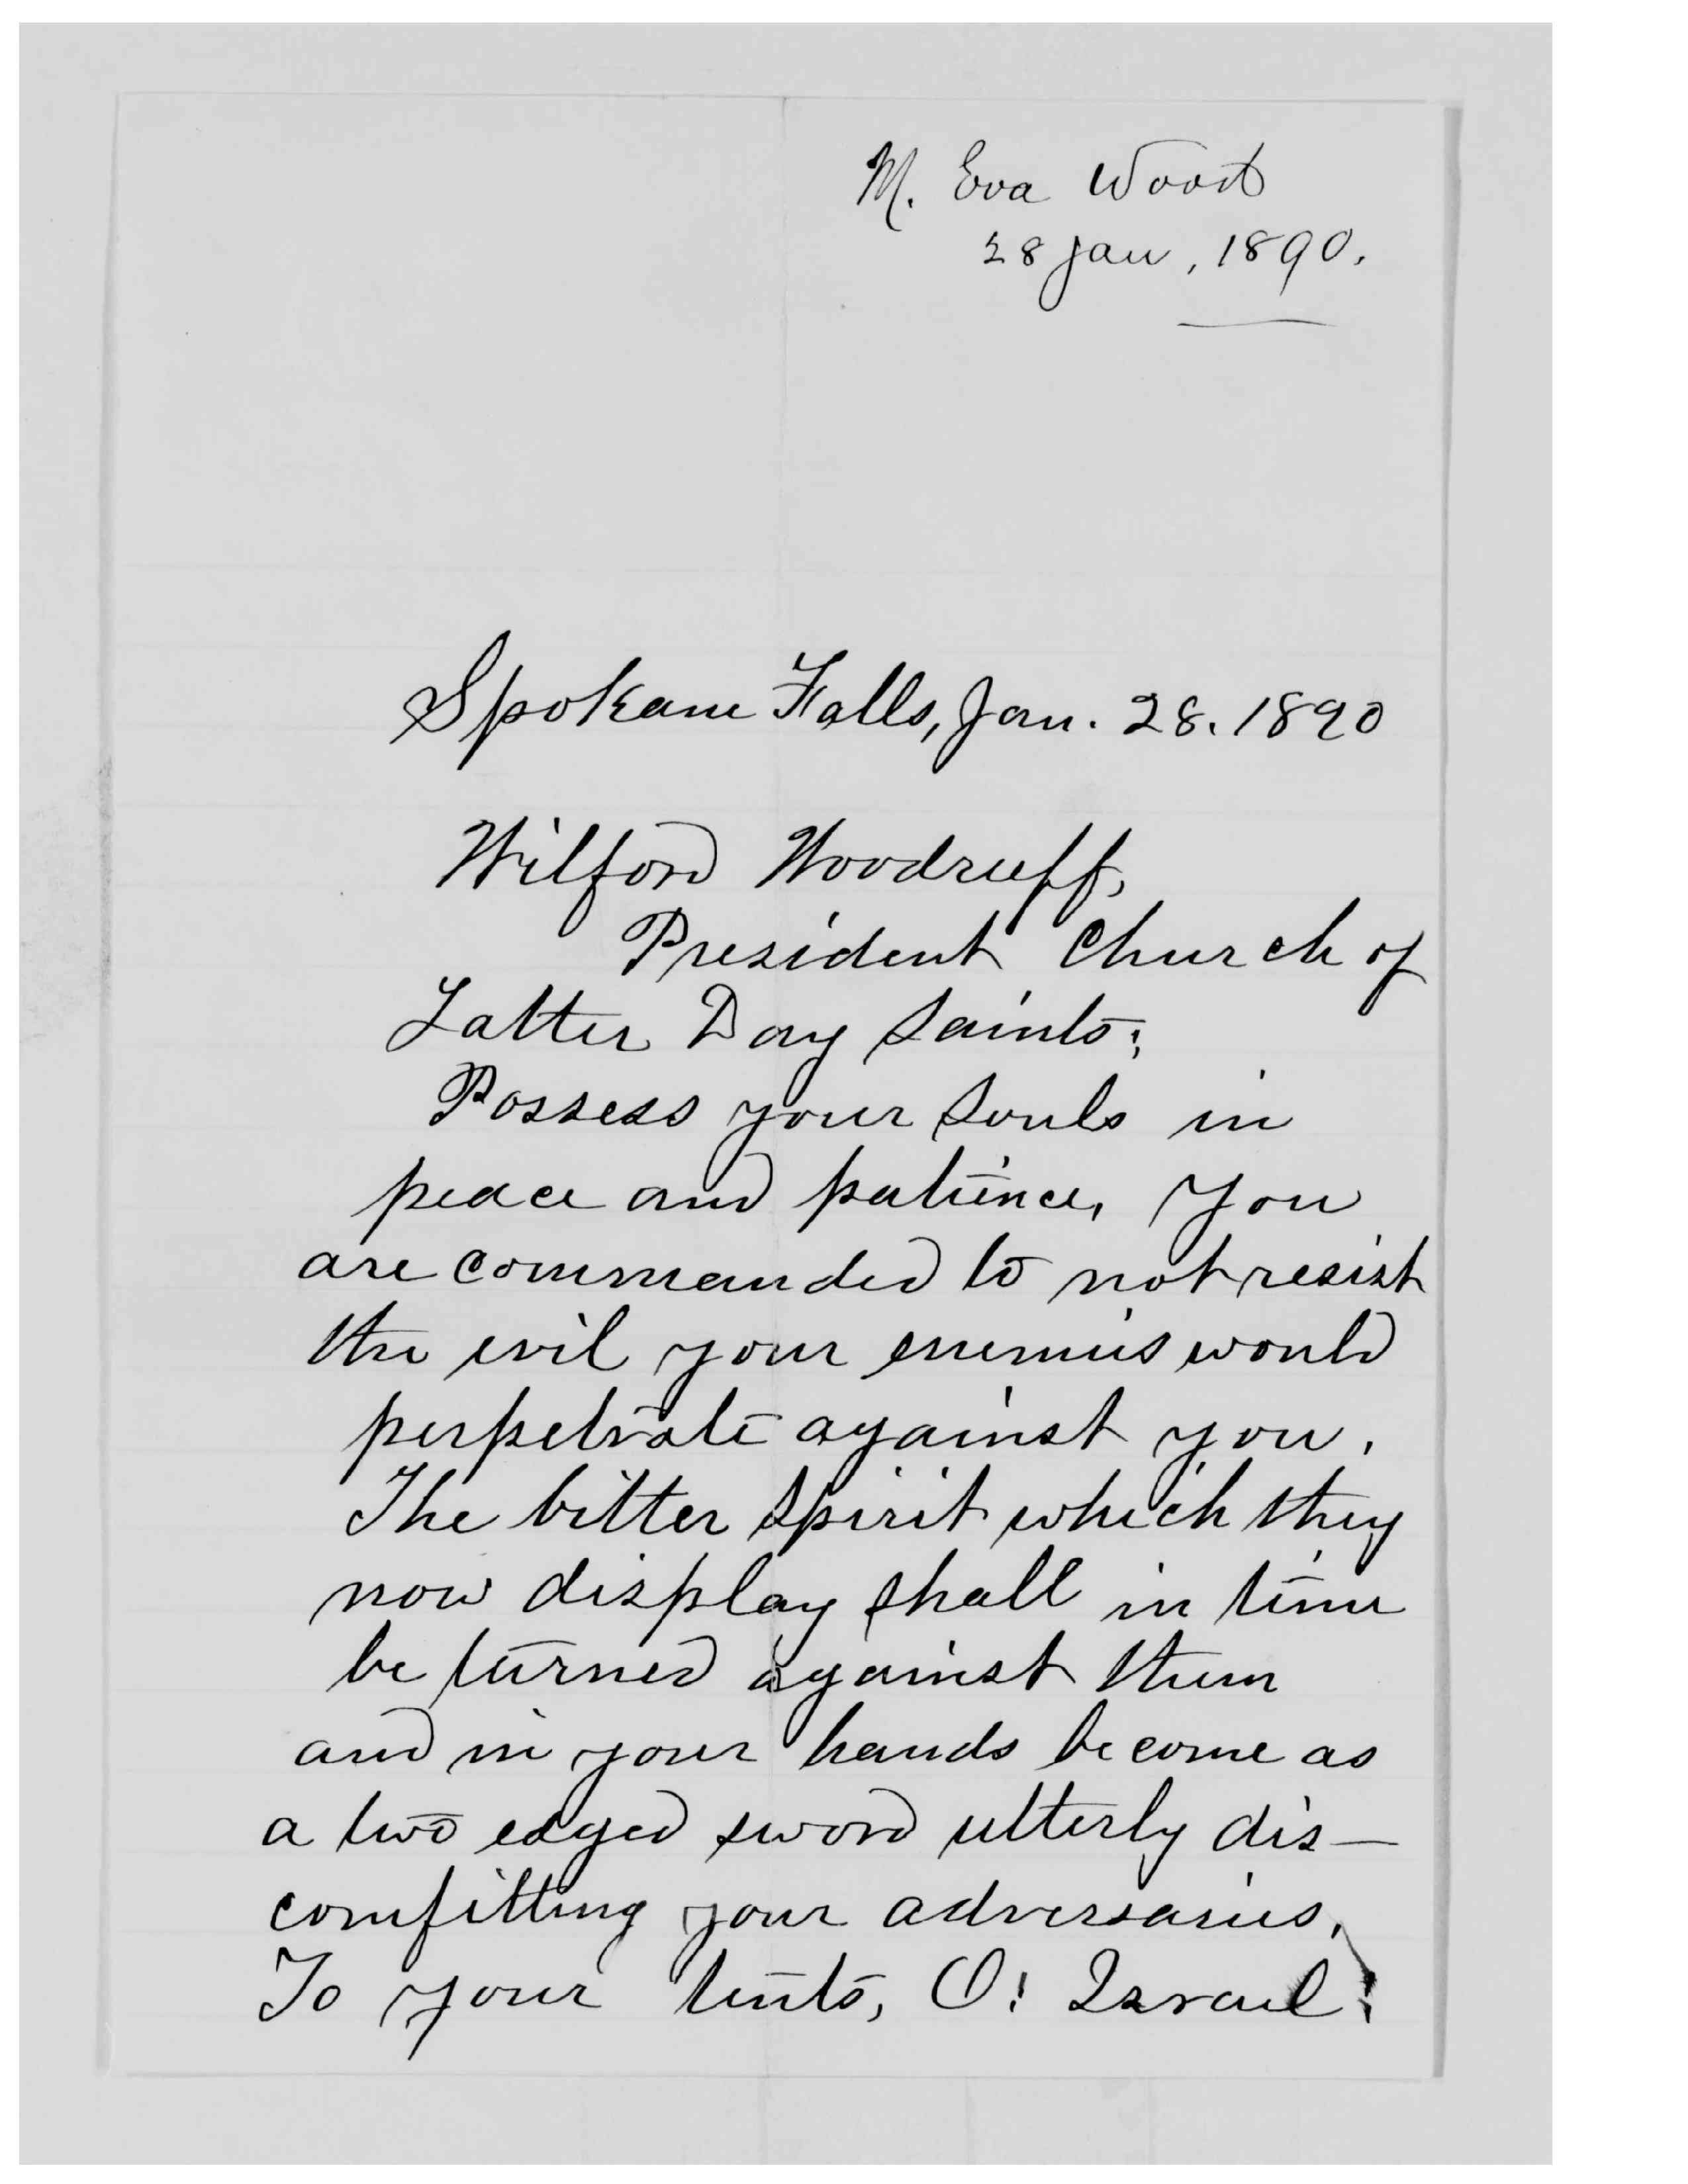 M. Eva Wood
28 Jan, 1890.
Spokane Falls, Jan. 28. 1890
Wilford Woodruff,
President Church of
Latter Day Saints;
Possess your Souls in
peace and patience, You
are commanded to not resist
the evil your enemies would
perpetrate against you.
The bitter spirit which they
now display shall in time
be turned against them
and in your hands become as
a two edged sword utterly dis-
comfitting your adversaries.
To your tents, O! Israel!